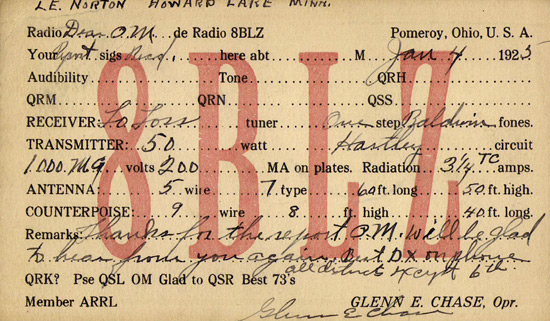 L.E. NORTON HOWARD LAKE MINN.
Radio Dear O.M. de Radio 8BLZ Pomeroy, Ohio, U. S. A.
Your sigs Recd. here abt M Jan 4 1925
Audibility Tone QRH
QRM QRN QSS
RECEIVER: Lo Loss tuner One step Baldwin fones.
TRANSMITTER: 50 watt Hartley circuit
1000 MG volts 200 MA on plates. Radiation 3 1/4 TC amps.
ANTENNA: 5 wire T type 60 ft. long 50 ft. high.
COUNTERPOISE: 9 wire 8 ft. high 40 ft. long.
Remarks: Thanks for the report O.M. Will be glad
to hear from you again. Best DX on phone
all districts except 6th.
QRK? Pse QSL OM Glad to QSR Best 73's
Member ARRL GLENN E. CHASE, Opr.
Glenn E Chase
8BLZ